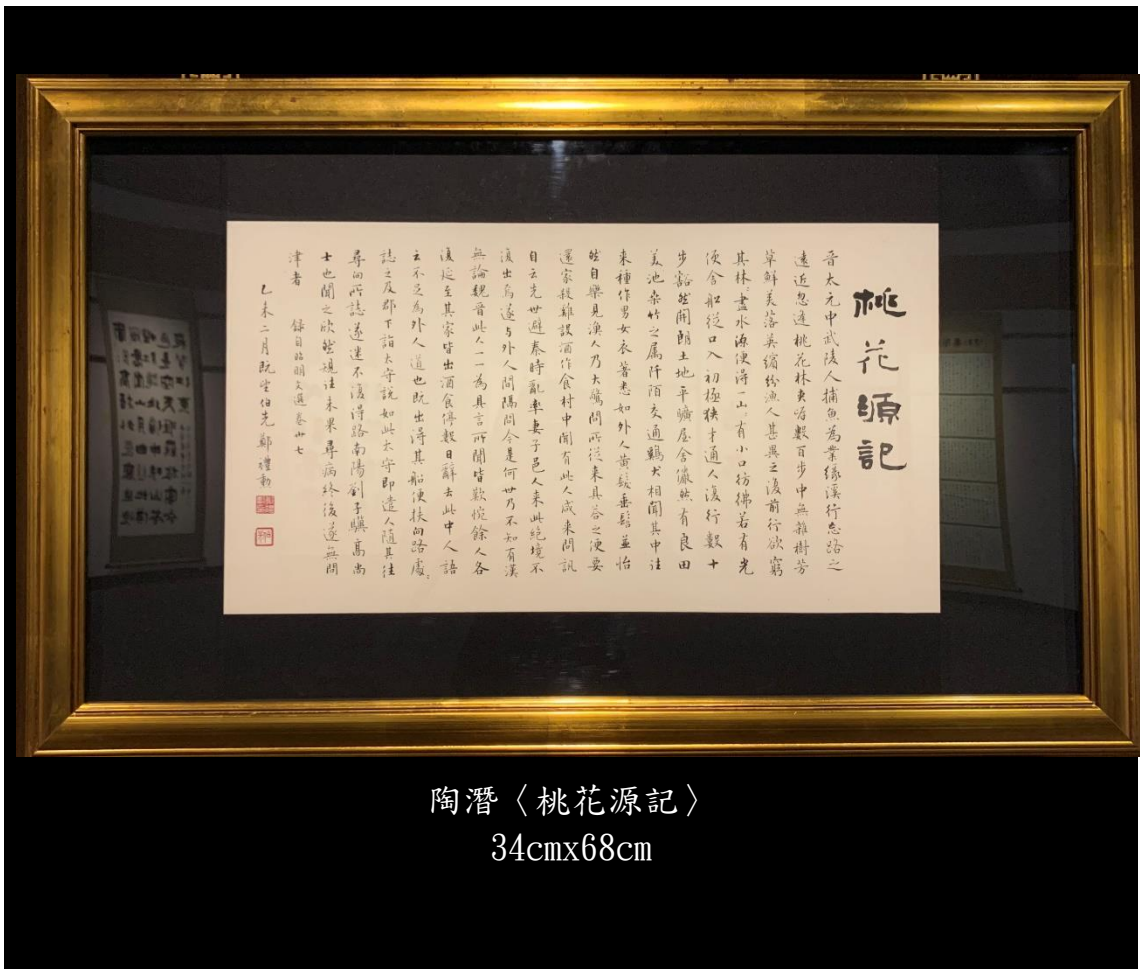 桃花源記
晉太元中武陵人捕魚為業緣溪行忘路之
遠近忽逢桃花林夾岸數百步中無雜樹芳
草鮮美落英繽紛漁人甚異之復前行欲窮
其林〻盡水源便得一山〻有小口彷彿若有光
便舍船從口入初極狹才通人復行數十
步豁然開朗土地平曠屋舍儼然有良田
美池桑竹之属阡陌交通鷄犬相聞其中往
来種作男女衣著悉如外人黃髮垂髫並怡
然自樂見漁人乃大驚問所從来具答之便要
還家殺雞設酒作食村中聞有此人咸来問訊
自云先世避秦時亂率妻子邑人来此絕境不
復出焉遂与外人間隔問今是何世乃不知有漢
無論魏晉此人一一為具言所聞皆歎惋餘人各
復延至其家皆出酒食停數日辭去此中人語
云不足為外人道也既出得其船便扶向路處〻
誌之及郡下詣太守說如此太守即遣人隨其往
尋向所誌遂迷不復得路南陽劉子驥高尚
士也聞之欣然規往未果尋病終後遂無問
津者 錄自昭明文選卷卌七
乙未二月
陶潛〈桃花源記〉
34cmx68cm